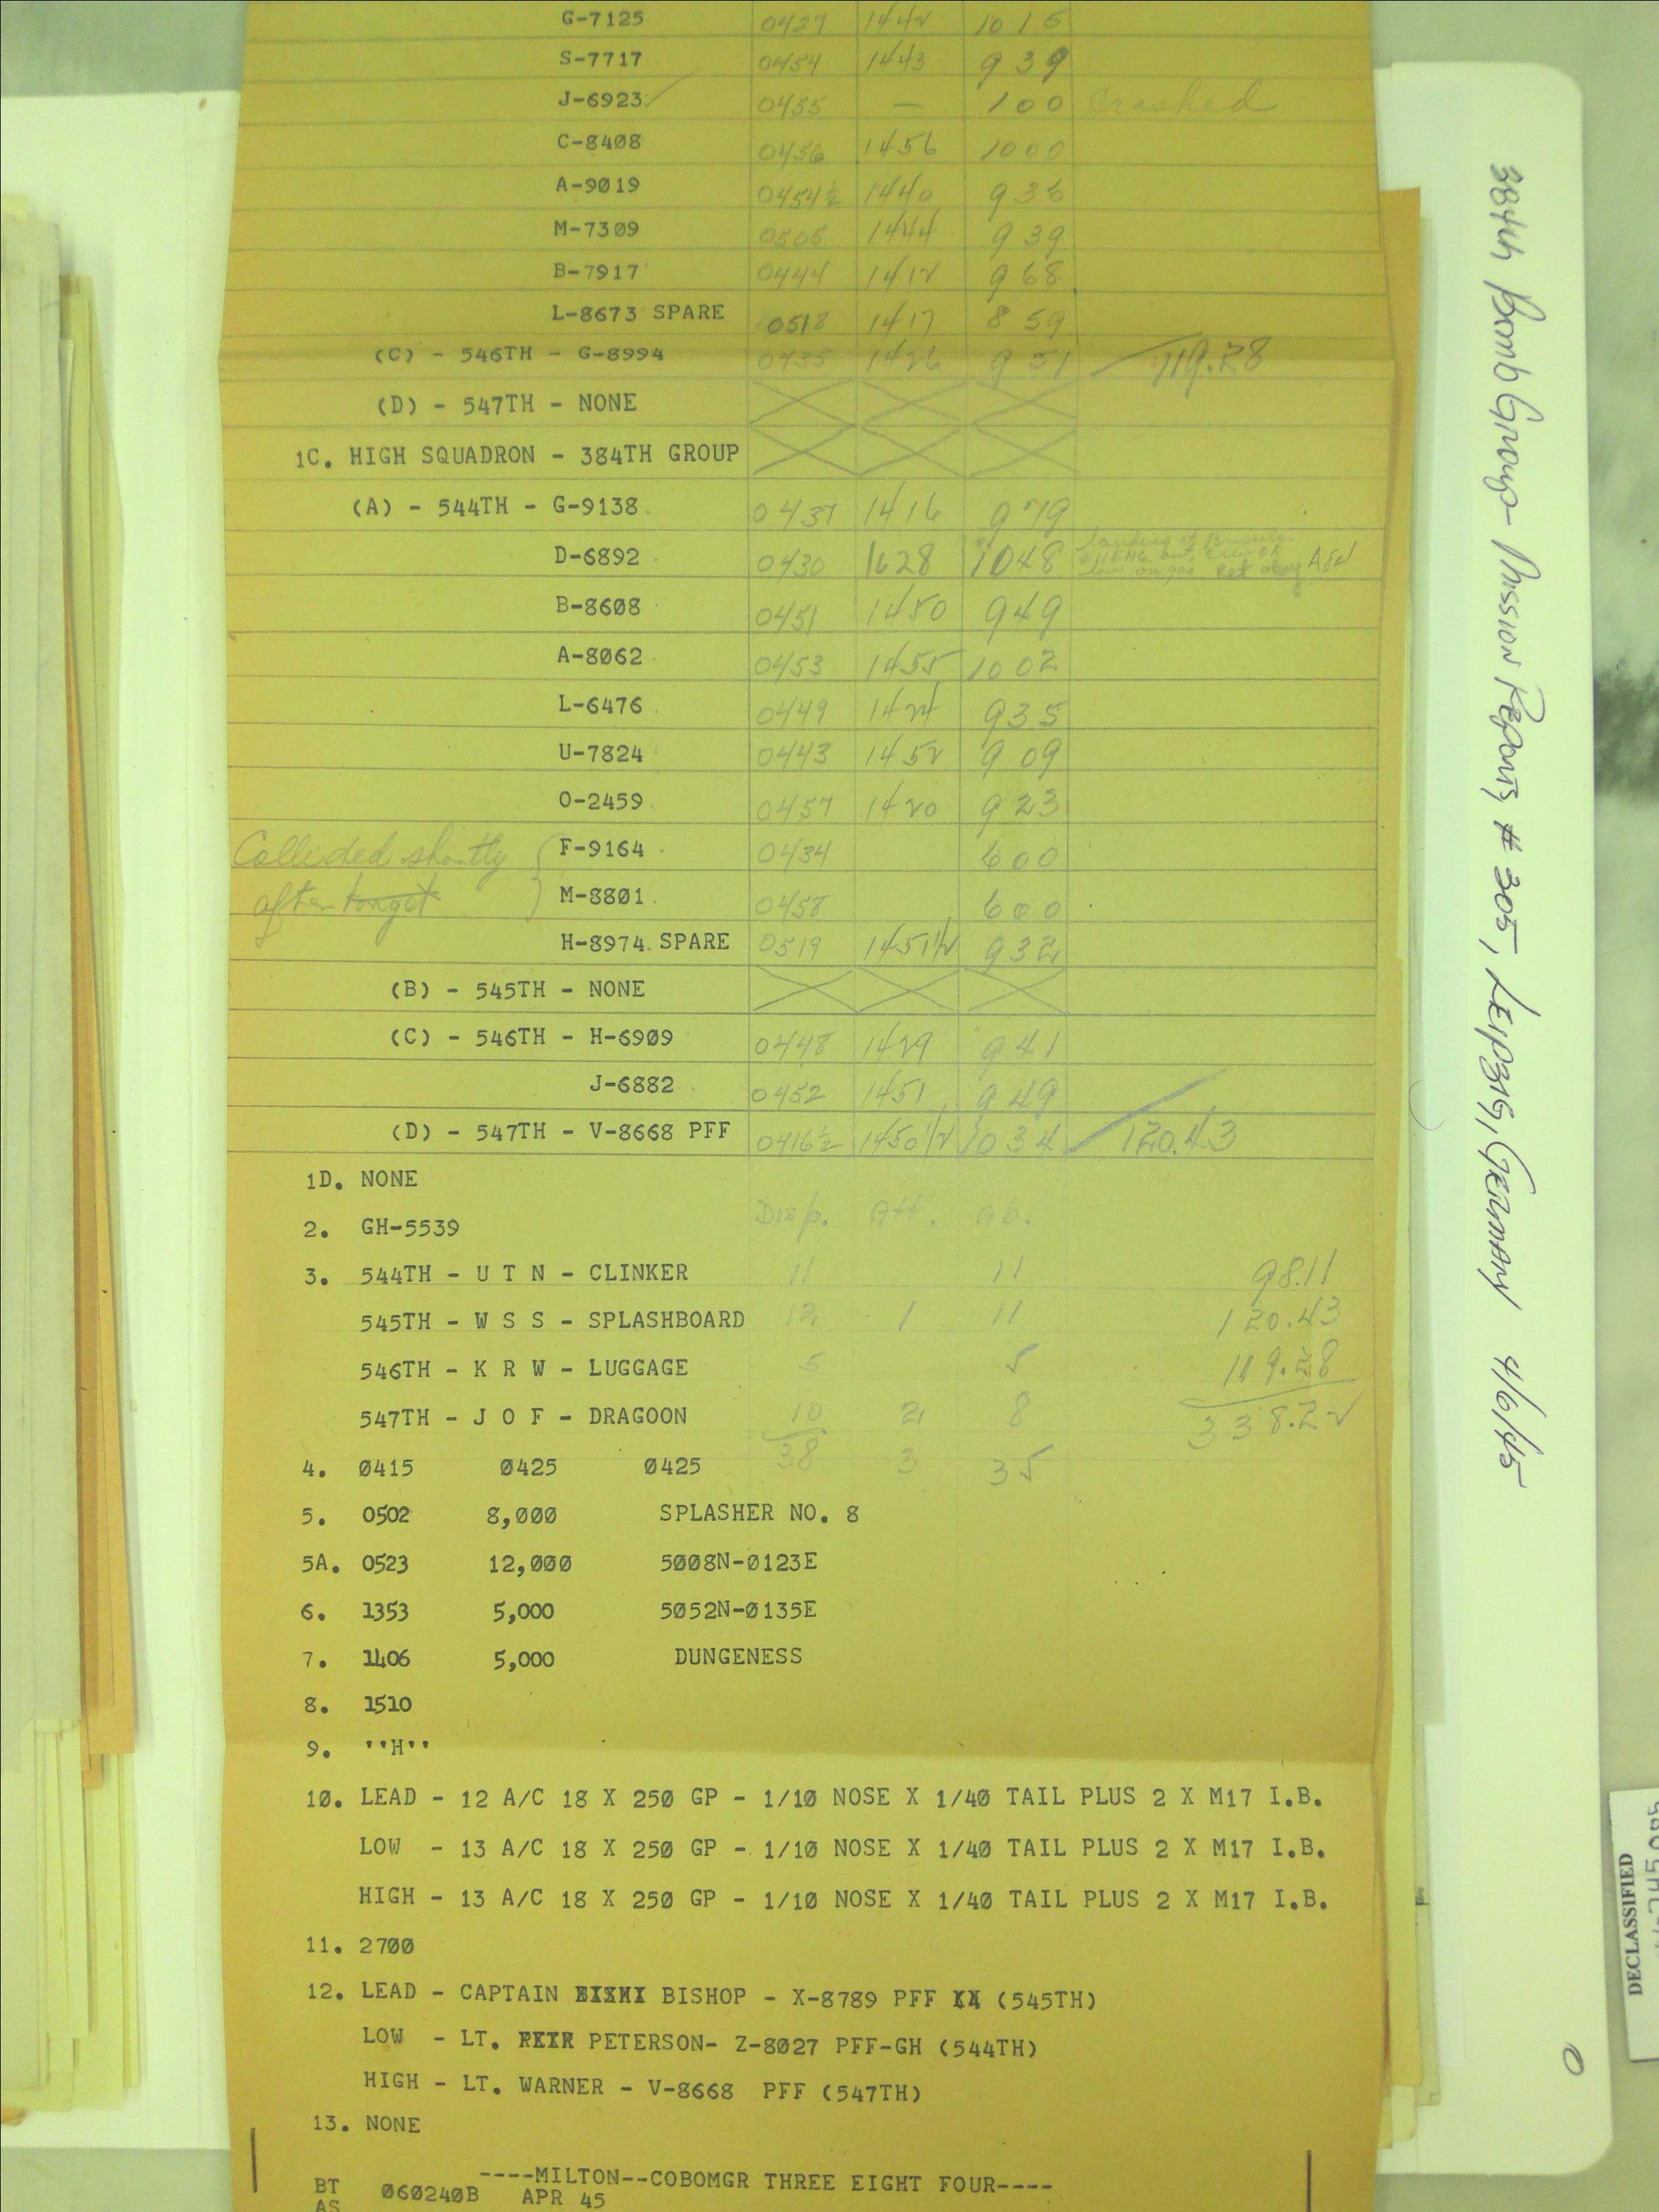 G-7125 0427 1442 1015
S-7717 0454 1443 939
J-6923 0455 — 100 Crashed
C-8408 0456 1456 1000
A-9019 0454½ 1440 936
M-7309 0505 1444 939
B-7917 0444 1412 968
L-8673 SPARE 0518 1417 859
(C) - 546TH - G-8994 0435 1426 951 119.28
(D) - 547TH - NONE
1C. HIGH SQUADRON - 384TH GROUP
(A) - 544TH - G-9138 0437 1416 979
D-6892 0430 1628 1048 low on gas Ret
B-8608 0451 1450 949
A-8062 0453 1455 1002
L-6476 0449 1424 935
U-7824 0443 1452 909
O-2459 0457 1420 923
Collided shortly F-9164 0434 600
after target M-8801 0458 600
H-8974 SPARE 0519 1451½ 932
(B) - 545TH - NONE
(C) - 546TH - H-6909 0448 1429 941
J-6882 0452 1451 949
(D) - 547TH - V-8668 PFF 0416½ 1450½ 1034 120.43
1D. NONE
Disp. Att. Ab.
2. GH-5539
3. 544TH - U T N - CLINKER 11 11 98.11
545TH - W S S - SPLASHBOARD 12 1 11 120.43
546TH - K R W - LUGGAGE 5 5 119.28
547TH - J O F - DRAGOON 10 2 8 338.22
38 3 35
4. 0415 0425 0425
5. 0502 8,000 SPLASHER NO. 8
5A. 0523 12,000 5008N-0123E
6. 1353 5,000 5052N-0135E
7. 1406 5,000 DUNGENESS
8. 1510
9. ''H''
10. LEAD - 12 A/C 18 X 250 GP - 1/10 NOSE X 1/40 TAIL PLUS 2 X M17 I.B.
LOW - 13 A/C 18 X 250 GP - 1/10 NOSE X 1/40 TAIL PLUS 2 X M17 I.B.
HIGH - 13 A/C 18 X 250 GP - 1/10 NOSE X 1/40 TAIL PLUS 2 X M17 I.B.
11. 2700
12. LEAD - CAPTAIN BISHOP - X-8789 PFF (545TH)
LOW - LT. PETERSON- Z-8027 PFF-GH (544TH)
HIGH - LT. WARNER - V-8668 PFF (547TH)
13. NONE
----MILTON--COBOMGR THREE EIGHT FOUR----
BT 060240B APR 45
AS
384th Bomb Group - Mission Reports # 305, Leipzig, Germany 4/6/45
DECLASSIFIED